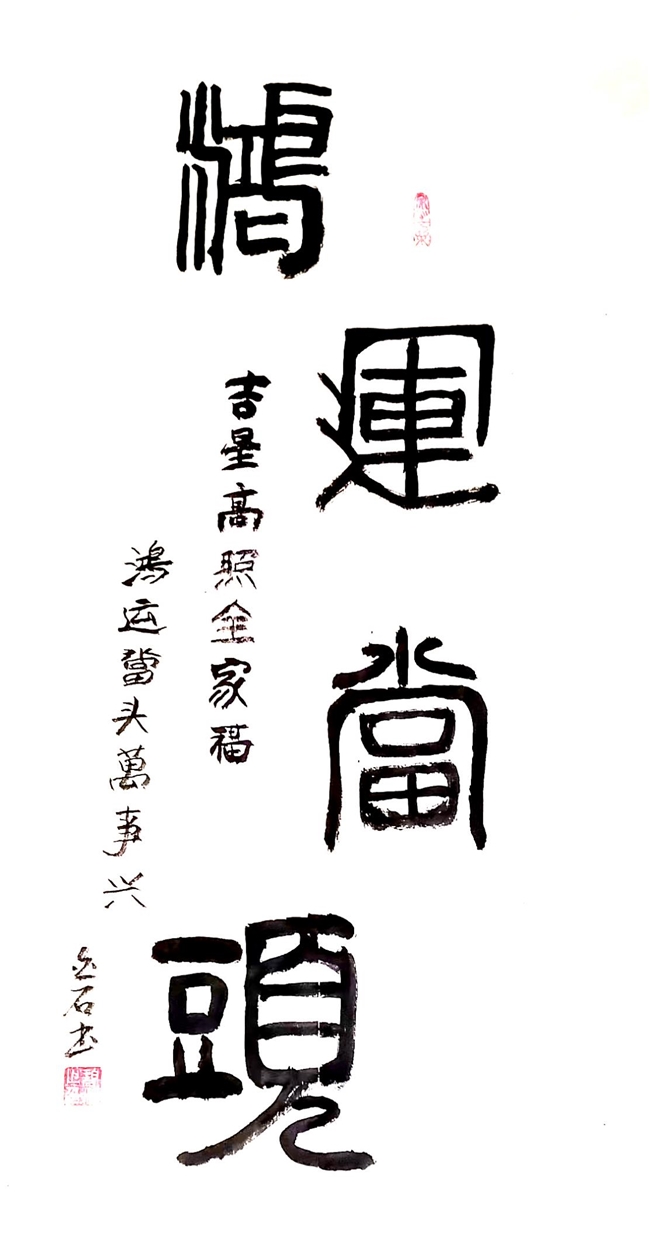 鴻運當頭
吉星高照全家福
鴻运當头萬事兴
石书